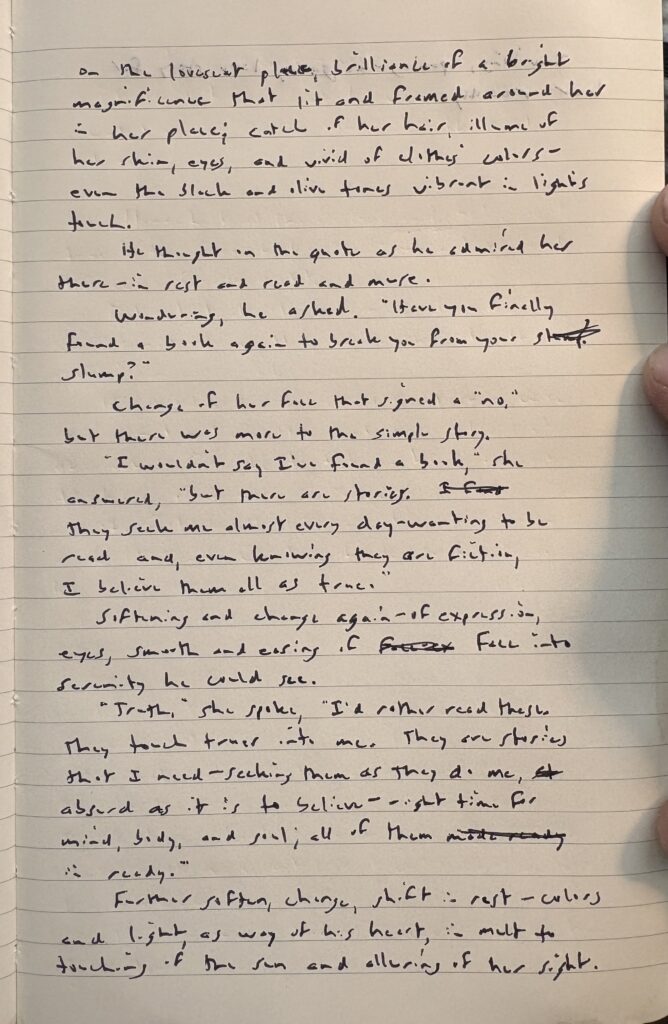 on the loveseat place, brilliance of a bright
magnificence that lit and framed around her
in her place; catch of her hair, illume of
her skin, eyes, and vivid of clothes' colors—
even the black and olive tones vibrant in light's
touch.
He thought on the quote as he admired her
there—in rest and read and more.
Wondering, he asked. "Have you finally
found a book again to break you from your
slump?"
Change of her face that signed a "no,"
but there was more to the simple story.
"I wouldn't say I've found a book," she
answered, "but there are stories.
They seek me almost every day—wanting to be
read and, even knowing they are fiction,
I believe them all as true."
Softening and change again—of expression,
eyes, smooth and easing of face into
serenity he could see.
"Truth," she spoke, "I'd rather read these.
They touch truer into me. They are stories
that I need—seeking them as they do me,
absurd as it is to believe—right time for
mind, body, and soul; all of them made ready
in ready."
Further soften, change, shift in rest—colors
and light, as way of his heart, in melt to
touching of the sun and alluring of her sight.